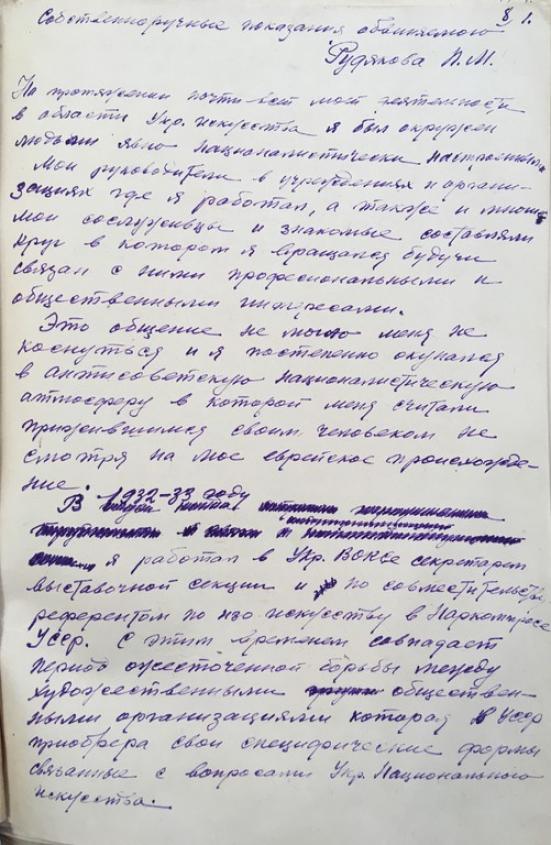 8 1.
Собственноручные показания обвиняемого
Рудякова П.М.
На протяжении почти всей моей деятельности
в области Укр. искусства я был окружен
людьми явно националистически настроенными.
Мои руководители в учреждениях и органи-
зациях где я работал, а также и многие
мои сослуживцы и знакомые составляли
круг в котором я вращался будучи
связан с ними професиональными и
общественными интересами.
Это общение не могло меня не
коснуться и я постепенно окунался
в антисоветскую националистическую
атмосферу в которой меня считали
прижившимся своим человеком не
смотря на мое еврейское происхожде-
ние.
В 1932-33 году
я работал в Укр. ВОКСе секретарем
выставочной секции и по совместительству
референтом по изо искусству в Наркомпросе
Усср. С этим временем совпадает
период ожесточенной борьбы между
художественными обществен-
ными организациями которая в Усср
приобрера свои специфические формы
связанные с вопросами Укр. Национального
искусства.